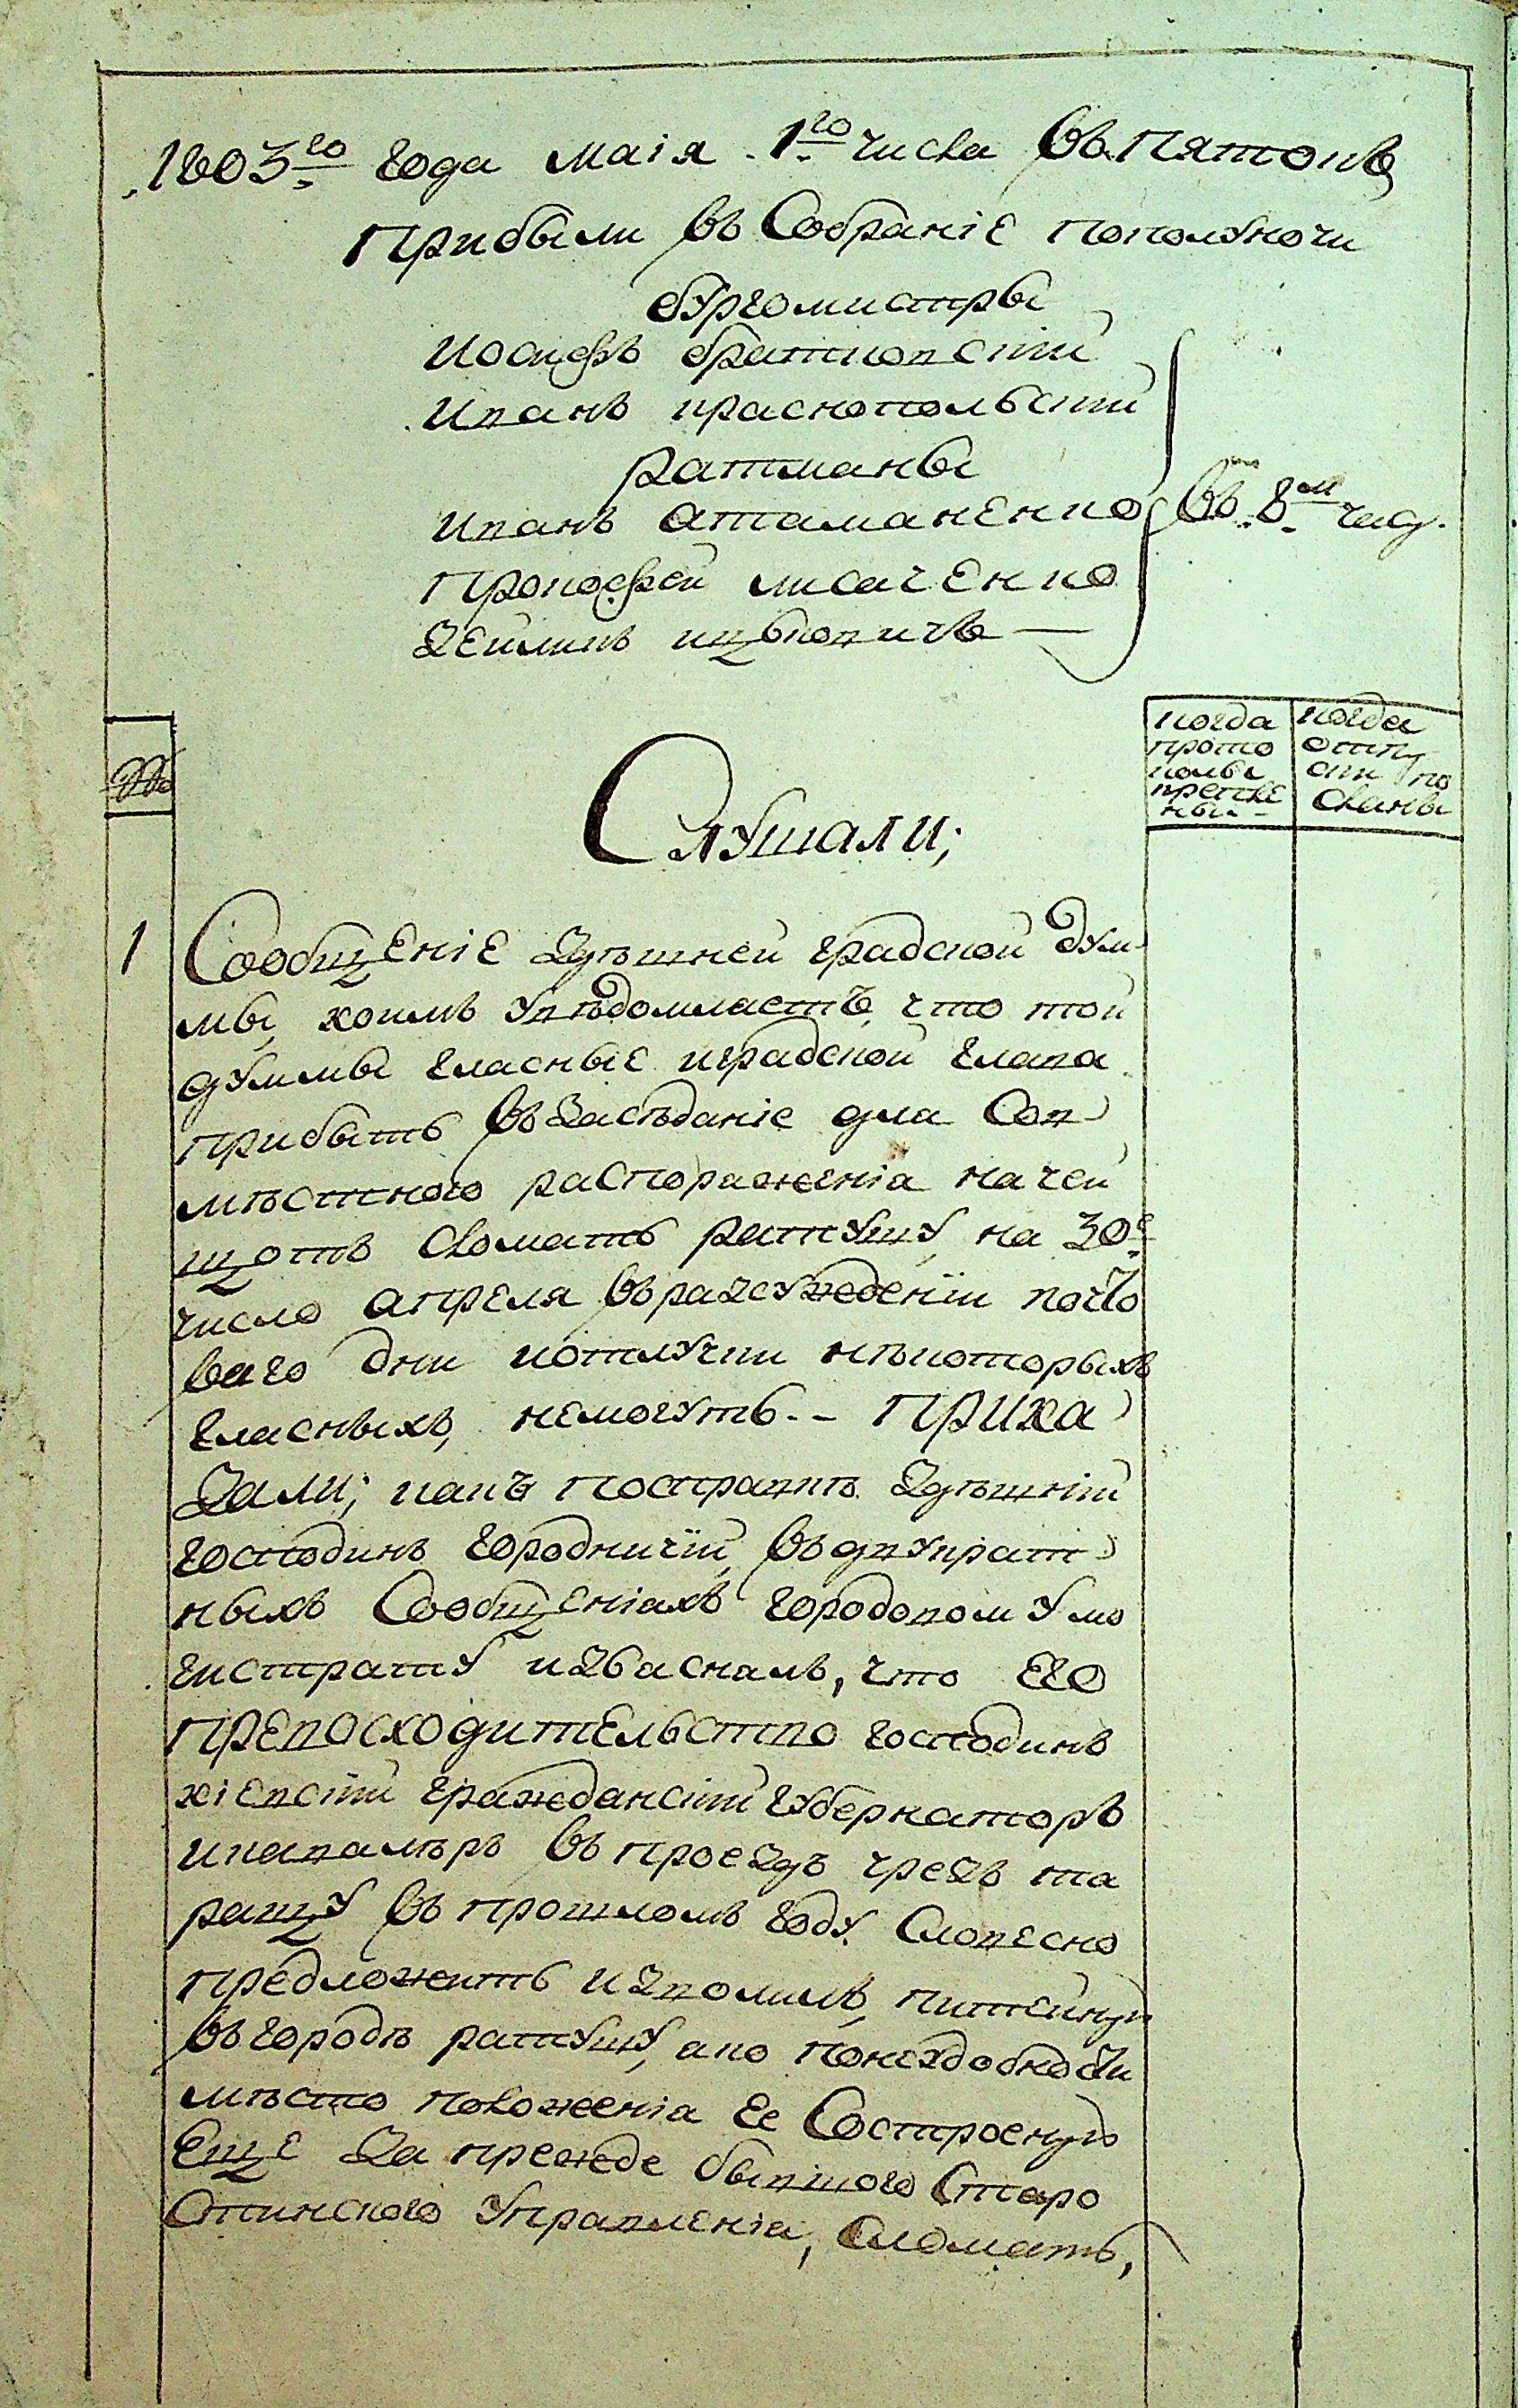 1803го года маія 1го числа въ Пятокъ
Прибыли въ Собраніе пополуночи
бургомистры
Иосифъ братковскій
Иванъ краснопольскій
ратманы
Иванъ атаманенко
въ 8м часу.
Прокофей лисаченко
Зейликъ ицковичъ
№
когда прото колы крепле ны
когда отпу ски по сланы
Слушали;
1
Сообщеніе здѣшней градской дум
мы, коимъ увѣдомляетъ, что той
думмы гласные и градской глава
прибыть въ засѣданіе для Сов
мѣстного распоряженія на чей
щотъ сломать ратушу, на 30е
число апреля въ разсужденіи почто
ваго дни и отлучки нѣкоторыхъ
гласныхъ, немогутъ. - Прика
зали; какъ здѣшній
господинъ городничій, въ двукрат
ныхъ Сообщеніахъ городовому ма
гистрату изъасналъ, что его
превосходительство господинъ
кіевскій гражданскій губернаторъ
и кавалѣръ въ проездъ чрезъ та
ращу въ прошломъ году словесно
предложить изволилъ, питейную
въ городѣ ратушу, ако по неудобности
мѣсто положеніа ее Состроеную
еще за прежде бывшого Старо
стинского Управленіа, Сломать,